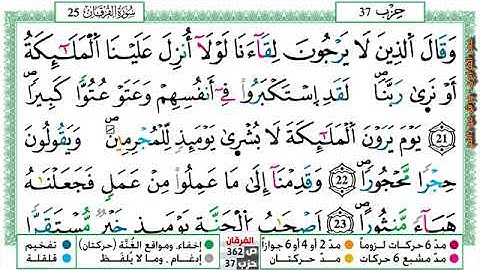 حِزْب 37 سُورَةُ الفُرْقَان 25
وَقَالَ ٱلَّذِينَ لَا يَرْجُونَ لِقَآءَنَا لَوْلَآ أُنزِلَ عَلَيْنَا ٱلْمَلَٰٓئِكَةُ
أَوْ نَرَىٰ رَبَّنَاۖ لَقَدِ إِسْتَكْبَرُوا۟ فِےٓ أَنفُسِهِمْ وَعَتَوْ عُتُوّٗا كَبِيرٗاۖ
21 يَوْمَ يَرَوْنَ ٱلْمَلَٰٓئِكَةَ لَا بُشْرَىٰ يَوْمَئِذٖ لِّلْمُجْرِمِينَۖ وَيَقُولُونَ
حِجْرٗا مَّحْجُورٗاۖ 22 وَقَدِمْنَآ إِلَىٰ مَا عَمِلُوا۟ مِنْ عَمَلٖ فَجَعَلْنَٰهُ
هَبَآءٗ مَّنثُورًاۖ 23 أَصْحَٰبُ ٱلْجَنَّةِ يَوْمَئِذٍ خَيْرٞ مُّسْتَقَرّٗا
مدّ 6 حركات لزوماً مدّ 2 أو 4 أو 6 جوازاً الفرقان ص 362 إخفاء، ومواقع الغُنَّة (حركتان) تفخيم
مدّ مشبع 6 حركات مدّ حركتان حزب 37 إدغام، وما لا يُلفَظ قلقلة